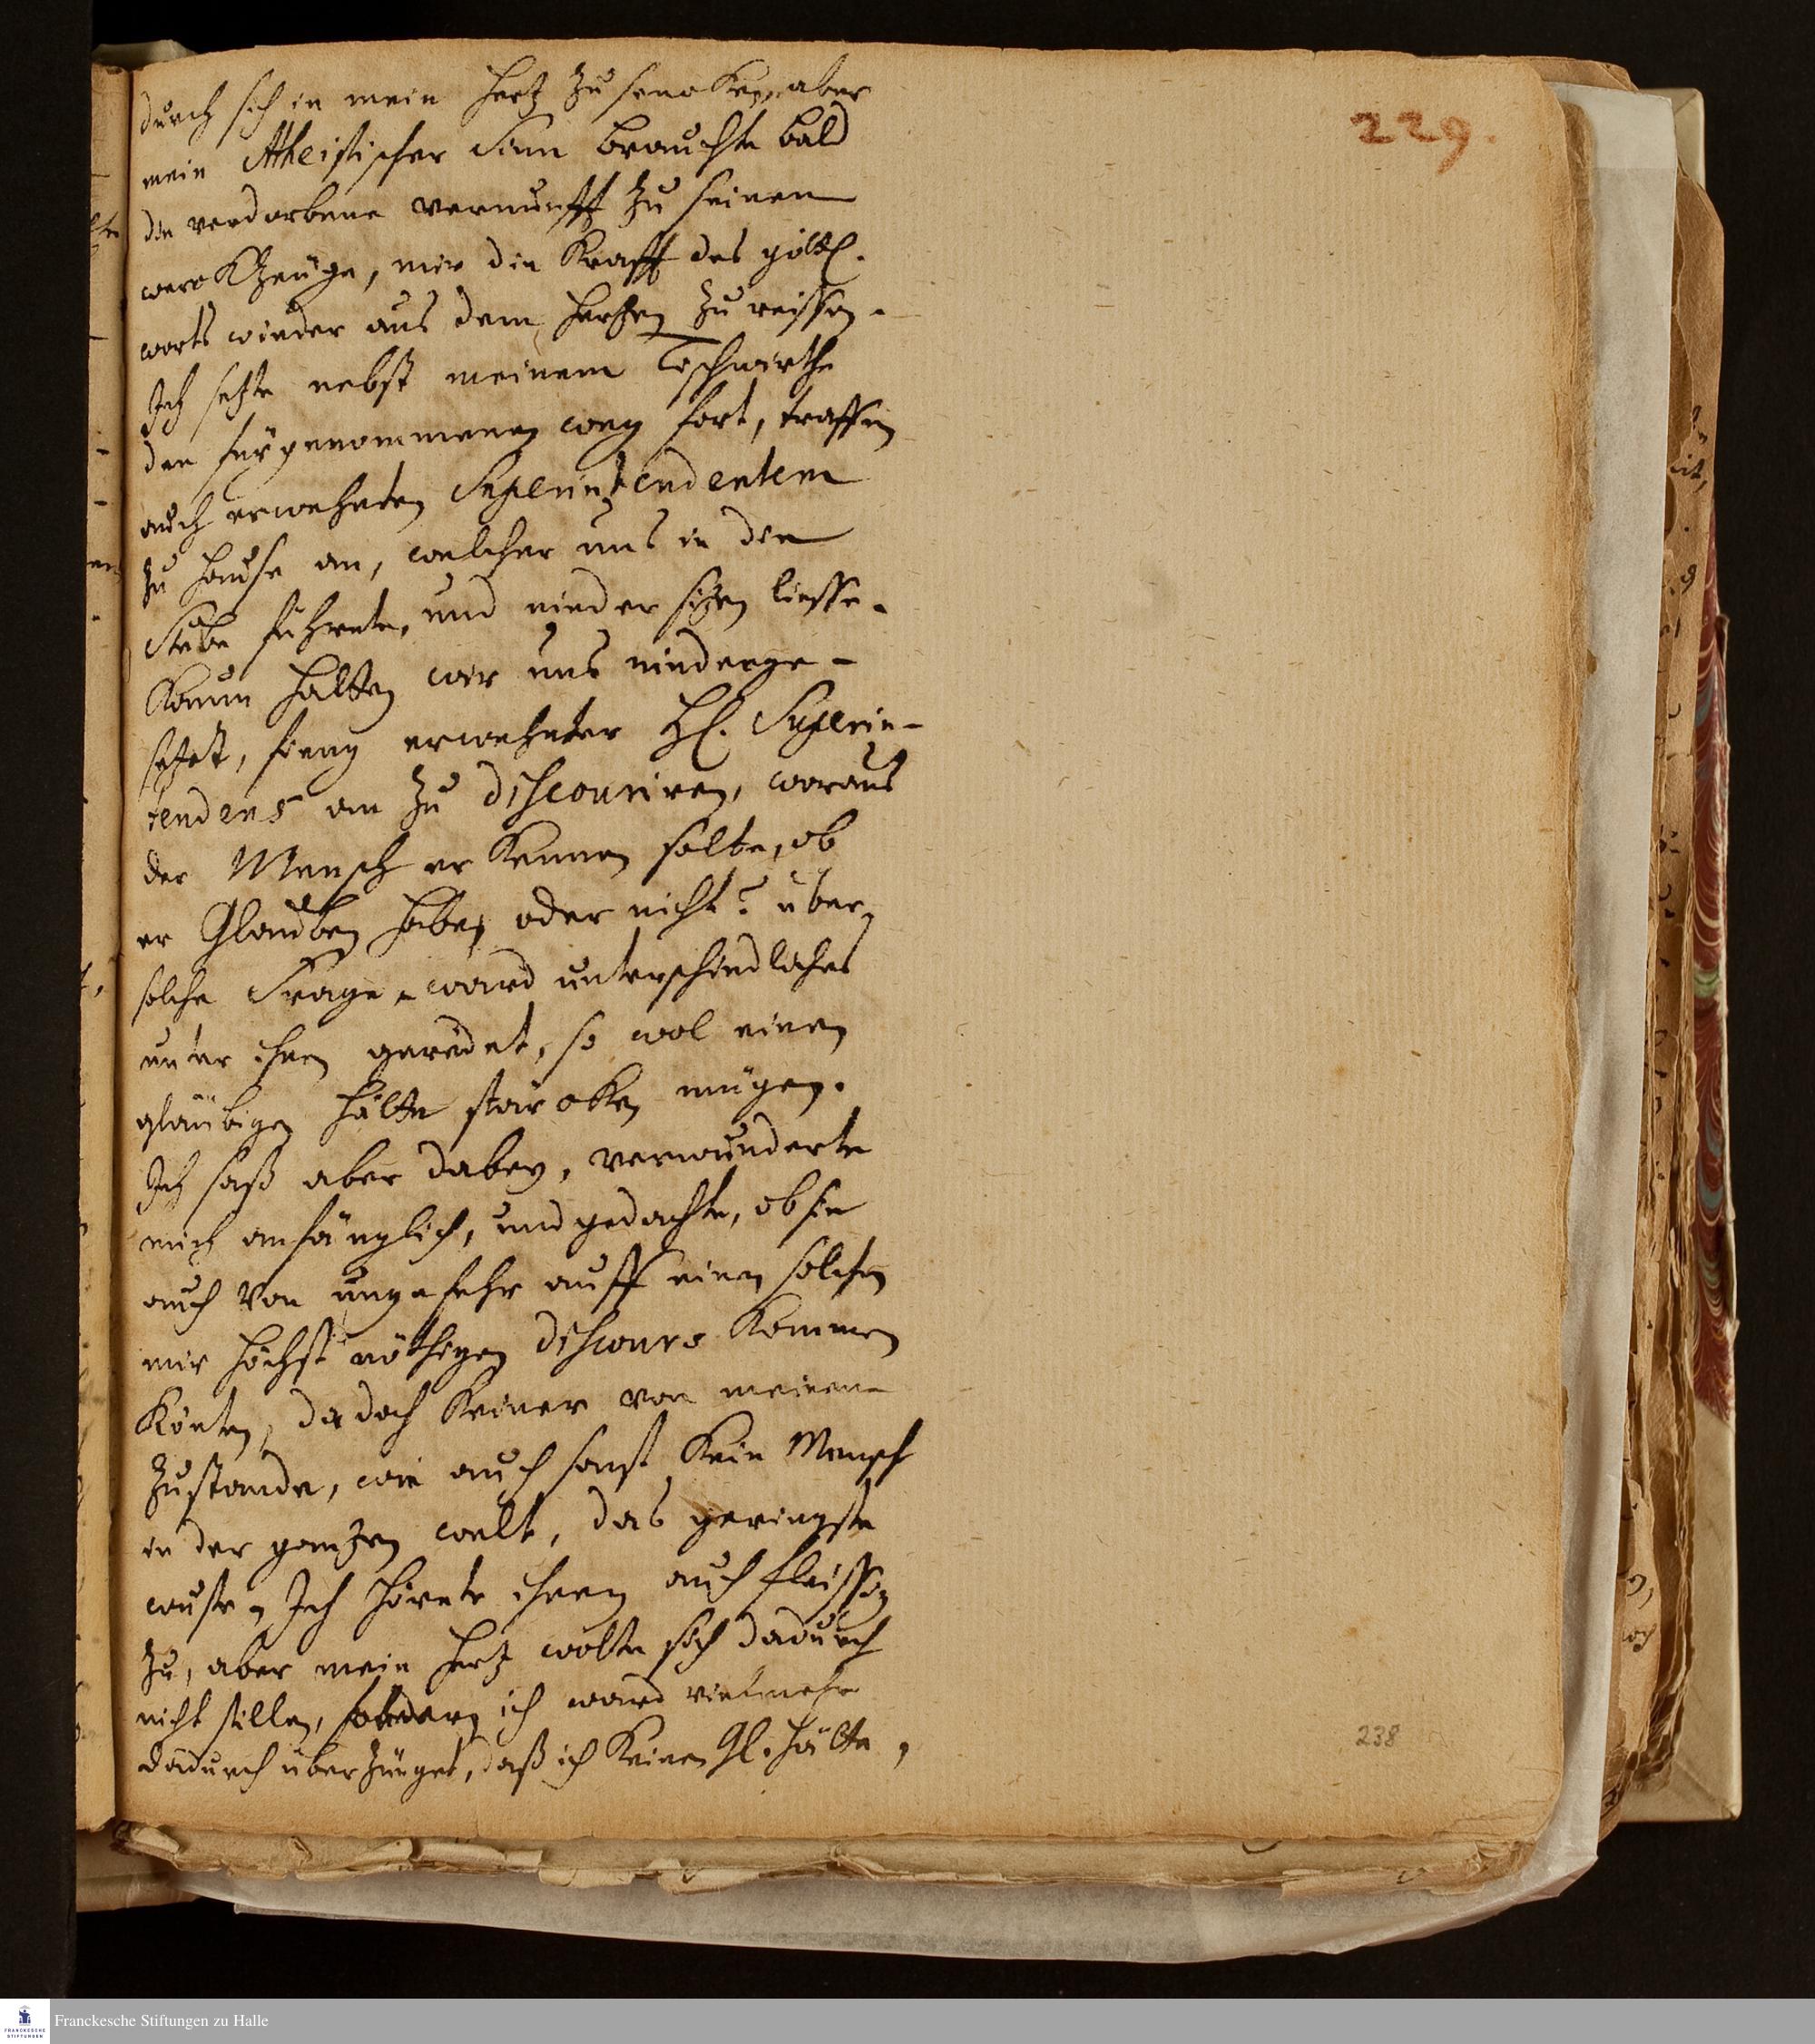 229.
durch sich in mein Hertz zu sencken, aber
mein Atheistischer Sinn brauchte bald
die verdorbene vernunfft zu seinem
werckzeuge, mir die Krafft des göttl.
worts wieder aus dem Hertzen zu reissen.
Ich setzte nebst meinem Tischwirthe
den fürgenommenen weg fort, traffen
auch erwehnten Superintendentem
zu Hause an, welcher uns in die
Stube führete, und nieder sitzen liesse.
Kaum hatten wir uns niederge-
setzet, fieng erwehnter H. Superin-
tendens an zu discouriren, woraus
der Mensch erkennen solte, ob
er Glauben habe, oder nicht? über
solche Frage ward unterschiedliches
unter ihnen geredet, so wol einen
gläubigen hätte stärcken mügen.
Ich saß aber dabey, verwunderte
mich anfänglich, und gedachte, ob sie
auch von ungefehr auff einen solchen
mir höchst nöthigen discours kommen
könten, da doch keiner von meinem
Zustande, wie auch sonst kein Mensch
in der gantzen welt, das geringste
wuste. Ich hörete ihnen auch fleissig
zu, aber mein Hertz wolte sich dadurch
nicht stillen, sondern ich ward vielmehr
dadurch überzeuget, daß ich keinen Gl. hätte,
238
Franckesche Stiftungen zu Halle